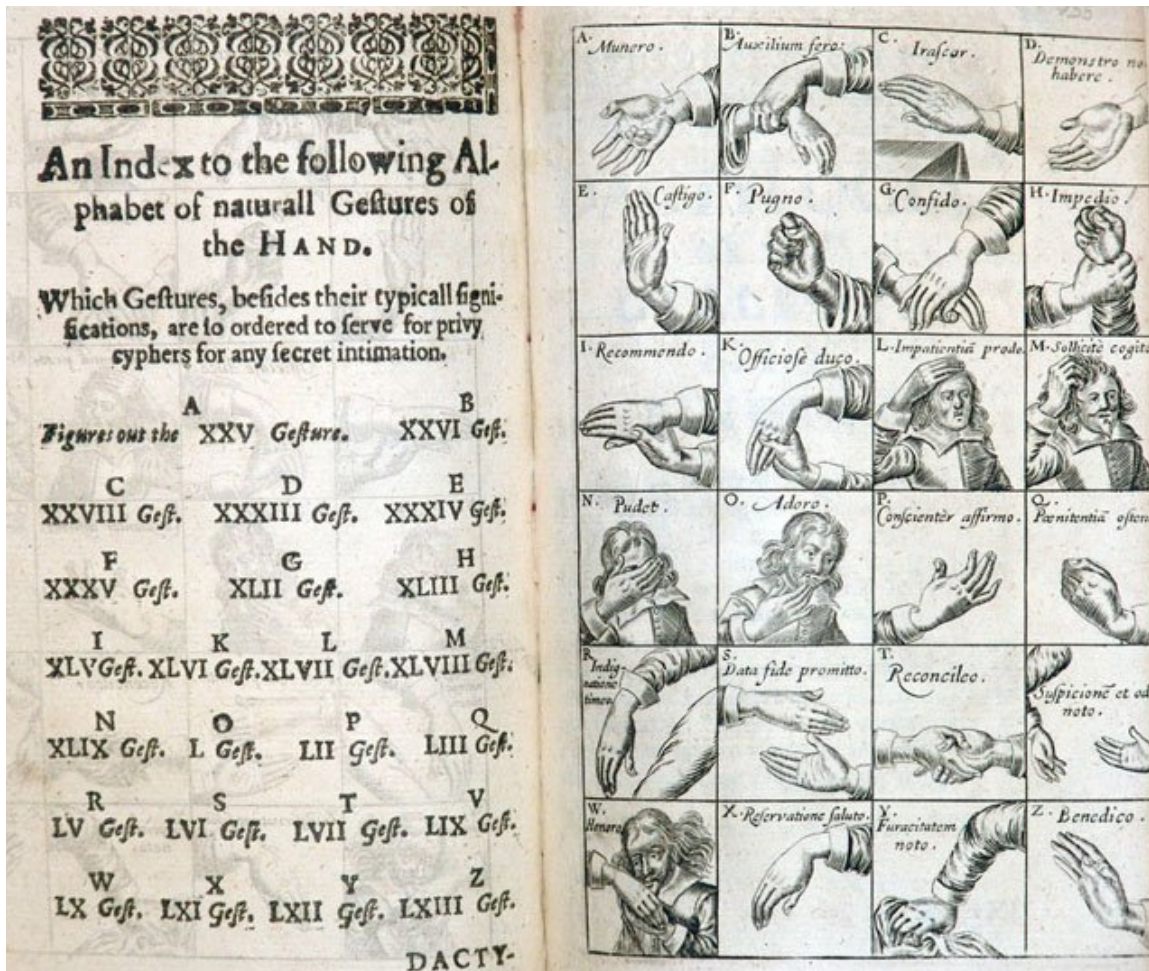 An Index to the following Al-
phabet of naturall Geſtures of
the HAND.
Which Geſtures, beſides their typicall ſigni-
fications, are ſo ordered to ſerve for privy
cyphers for any ſecret intimation.
A B
Figures out the XXV Geſture. XXVI Geſt.
C D E
XXVIII Geſt. XXXIII Geſt. XXXIV Geſt.
F G H
XXXV Geſt. XLII Geſt. XLIII Geſt.
I K L M
XLV Geſt. XLVI Geſt. XLVII Geſt. XLVIII Geſt.
N O P Q
XLIX Geſt. L Geſt. LII Geſt. LIII Geſt.
R S T V
LV Geſt. LVI Geſt. LVII Geſt. LIX Geſt.
W X Y Z
LX Geſt. LXI Geſt. LXII Geſt. LXIII Geſt.
DACTY-
A. Munero.
B. Auxilium fero.
C. Iraſcor.
D. Demonstro no
habere.
E. Caſtigo.
F. Pugno.
G. Confido.
H. Impedio.
I. Recommendo.
K. Officioſè duco.
L. Impatientiā prodo.
M. Sollicitè cogito
N. Pudet.
O. Adoro.
P. Conſcientèr affirmo.
Q. Pænitentiā oſten
R. Indig-
natione
timeo.
S. Data fide promitto.
T. Reconcileo.
Suſpicionē et od
noto.
W. Honoro.
X. Reſervatione ſaluto.
Y. Furacitatem
noto.
Z. Benedico.